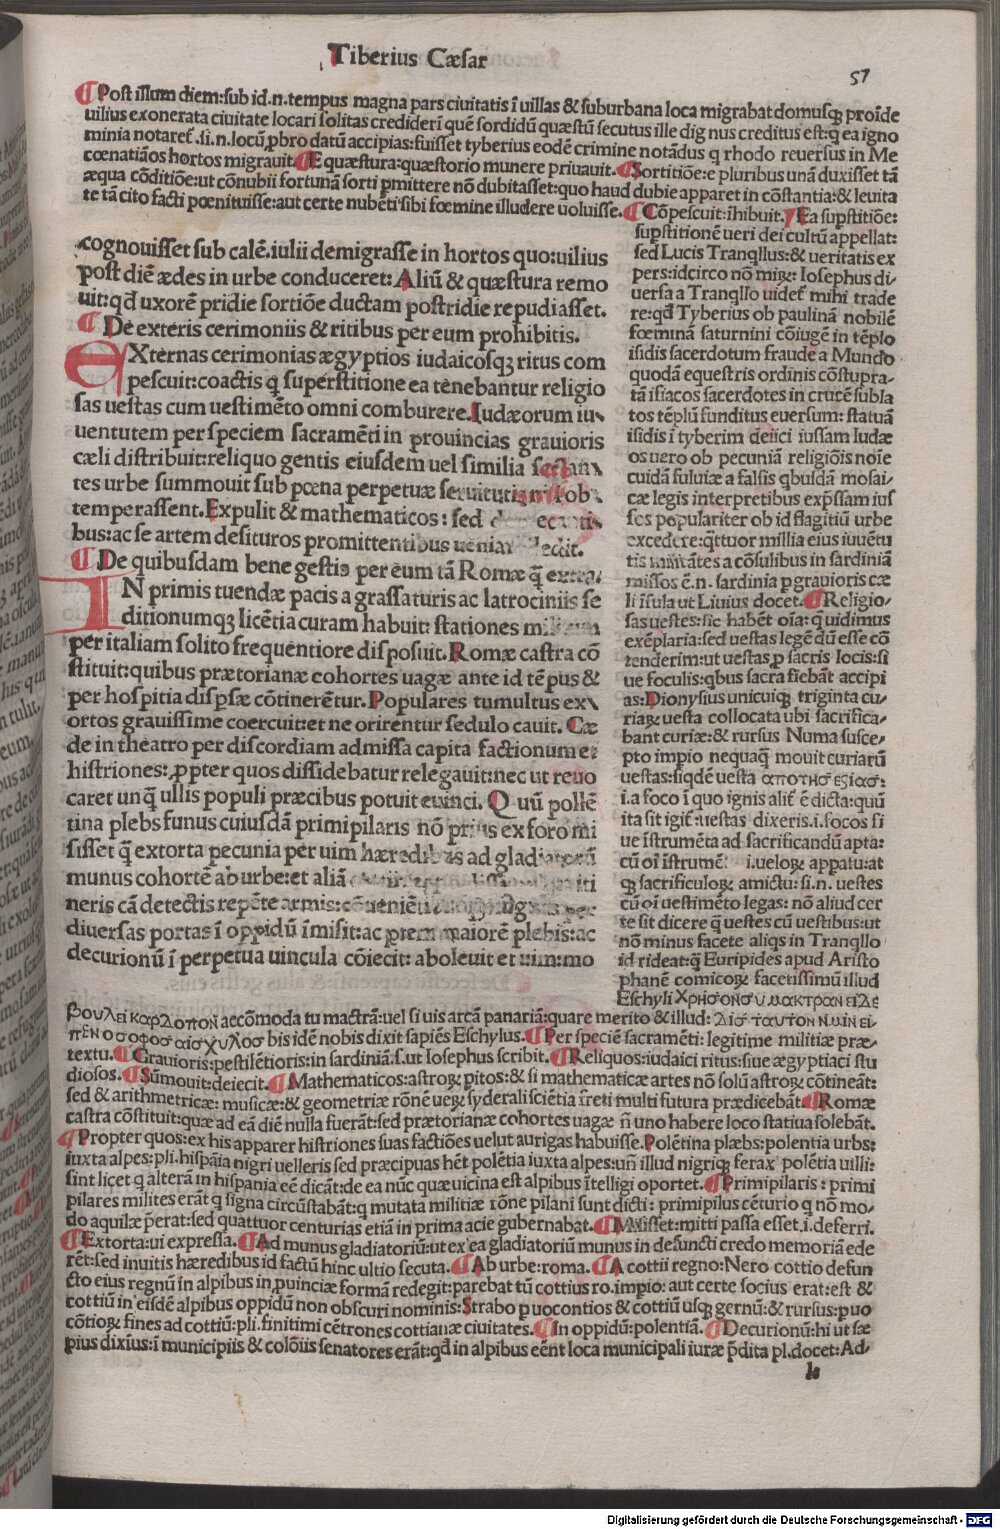 Tiberius Cæsar
57
Post illum diem:sub id.n.tempus magna pars ciuitatis ī uillas & suburbana loca migrabat domusq; proīde
uilius exonerata ciuitate locari solitas credideri quē sordidū quæstū secutus ille dignus creditus est:q ea igno
minia notaret̄.si.n.locū ꝓbro datū accipias:fuisset tyberius eodē crimine notādus q rhodo reuersus in Me
cœnatiāos hortos migrauit. E quæstura:quæstorio munere priuauit. Sortitiōe:e pluribus unā duxisset tā
æqua cōditiōe:ut cōnubii fortunā sorti ꝑmittere nō dubitasset:quo haud dubie apparet in cōstantia:& leuita
te tā cito facti pœnituisse:aut certe nubēti sibi fœmine illudere uoluisse. Cōpescuit:īhibuit. Ea supstitiōe:
cognouisset sub calē.iulii demigrasse in hortos quo:uilius
post diē ædes in urbe conduceret:Aliū & quæstura remo
uit:qd uxorē pridie sortiōe ductam postridie repudiasset.
De exteris cerimoniis & ritibus per eum prohibitis.
EXternas cerimonias ægyptios iudaicosq; ritus com
pescuit:coactis q superstitione ea tenebantur religio
sas uestas cum uestimēto omni comburere.Iudæorum iu-
uentutem per speciem sacramēti in prouincias grauioris
cæli distribuit:reliquo gentis eiusdem uel similia sectan-
tes urbe summouit sub pœna perpetuæ seruitutis nisi ob-
temperassent.Expulit & mathematicos:sed
bus:ac se artem desituros promittentibus ueniam dedit.
De quibusdam bene gestis per eum tā Romæ q̄ extra.
IN primis tuendæ pacis a grassaturis ac latrociniis se
ditionumq; licētia curam habuit:stationes militum
per italiam solito frequentiore disposuit.Romæ castra cō
stituit:quibus prætorianæ cohortes uagæ ante id tēpus &
per hospitia dispsæ cōtinerētur.Populares tumultus ex-
ortos grauissime coercuit:et ne orirentur sedulo cauit.Cæ
de in theatro per discordiam admissa capita factionum et
histriones:ꝓpter quos dissidebatur relegauit:nec ut reuo
caret unq̄ ullis populi præcibus potuit euinci.Quū pollē
tina plebs funus cuiusdā primipilaris nō prius ex foro mi
sisset q̄ extorta pecunia per uim hæredibus ad gladiatoriū
munus cohortē ab urbe:et aliā
neris cā detectis repēte armis:
diuersas portas ī oppidū īmisit:ac ꝑtem maiorē plebis:ac
decurionū ī perpetua uincula cōiecit:aboleuit et uim:mo
supstitionē ueri dei cultū appellat:
sed Lucis Tranqllus:& ueritatis ex
pers:idcirco nō miꝝ:Iosephus di-
uersa a Tranqllo uidet̄ mihi trade
re:qd Tyberius ob paulinā nobilē
fœminā saturnini cōiugē in tēplo
isidis sacerdotum fraude a Mundo
quodā equestris ordinis cōstupra-
tā isiacos sacerdotes in crucē subla
tos tēplū funditus euersum:statuā
isidis ī tyberim deiici iussam Iudæ
os uero ob pecuniā religiōis noīe
cuidā fuluiæ a falsis qbusdā mosai-
cæ legis interpretibus exp̄ssam ius
ses populariter ob id flagitiū urbe
excedere:qttuor millia eius iuuētu
tis militātes a cōsulibus in sardiniā
missos ē.n.sardinia ꝑgrauioris cæ
li īsula ut Liuius docet. Religio-
sas uestes:sic habēt oīa:q uidimus
exēplaria:sed uestas legēdū esse cō
tenderim:ut uestas ꝓ sacris locis:si
ue foculis:qbus sacra fiebāt accipi
as:Dionysius unicuiq; triginta cu-
riaꝝ uesta collocata ubi sacrifica-
bant curiæ:& rursus Numa susce-
pto impio nequaq̄ mouit curiarū
uestas:siqdē uesta αποτησ εξιασ:
i.a foco ī quo ignis alit̄ ē dicta:quū
ita sit igit̄:uestas dixeris.i.focos si
ue īstrumēta ad sacrificandū apta:
cū oī īstrumē i.ueloꝝ appatu:at
q; sacrificuloꝝ amictu:si.n.uestes
cū oī uestimēto legas:nō aliud cer
te sit dicere q̄ uestes cū uestibus:ut
nō minus facete aliqs in Tranqllo
id rideat:q̄ Euripides apud Aristo
phanē comicoꝝ facetissimū illud
Eschyli Χρησονσυ μακτραν ειδε
βουλει καρδοπον accōmoda tu mactrā:uel si uis arcā panariā:quare merito & illud: δισ ταυτον νμιν ει-
πεν οσοφοσ αισχυλοσ bis idē nobis dixit sapiēs Eschylus. Per speciē sacramēti:legitime militiæ præ-
textu. Grauioris:pestilētioris:in sardiniā.s.ut Iosephus scribit. Reliquos:iudaici ritus:siue ægyptiaci stu
diosos. Sūmouit:deiecit. Mathematicos:astroꝝ pitos:& si mathematicæ artes nō solū astroꝝ cōtineāt:
sed & arithmetricæ:musicæ:& geometriæ rōnē ueꝝ syderali sciētia īreti multi futura prædicebāt. Romæ
castra cōstituit:quæ ad eā diē nulla fuerāt:sed prætorianæ cohortes uagæ n̄ uno habere loco statiua solebāt.
Propter quos:ex his apparer histriones suas factiōes uelut aurigas habuisse.Polētina plæbs:polentia urbs:
iuxta alpes:pli.hispāia nigri uelleris sed præcipuas hēt polētia iuxta alpes:uñ illud nigriq; ferax polētia uilli:
sint licet q alterā in hispania eē dicāt:de ea nūc quæ uicina est alpibus ītelligi oportet. Primipilaris:primi
pilares milites erāt q signa circūstabāt:q mutata militiæ rōne pilani sunt dicti:primipilus cēturio q nō mo-
do aquilæ p̄erat:sed quattuor centurias etiā in prima acie gubernabat. Misisset:mitti passa esset.i.deferri.
Extorta:ui expressa. Ad munus gladiatoriū:ut ex ea gladiatoriū munus in defuncti credo memoriā ede
rēt:sed inuitis hæredibus id factū hinc ultio secuta. Ab urbe:roma. A cottii regno:Nero cottio defun
cto eius regnū in alpibus in ꝓuinciæ formā redegit:parebat tū cottius ro.impio:aut certe socius erat:est &
cottiū in eisdē alpibus oppidū non obscuri nominis:Strabo ꝓ uocontios & cottiū usq; gernū:& rursus:ꝓuo
cōtioꝝ fines ad cottiū:pli.finitimi cētrones cottianæ ciuitates. In oppidū:polentiā. Decurionū:hi ut sæ
pius dixius:ī municipiis & colōiis senatores erāt:qd in alpibus eēnt loca municipali iuræ p̄dita pl.docet:Ad-
h
Digitalisierung gefördert durch die Deutsche Forschungsgemeinschaft - DFG